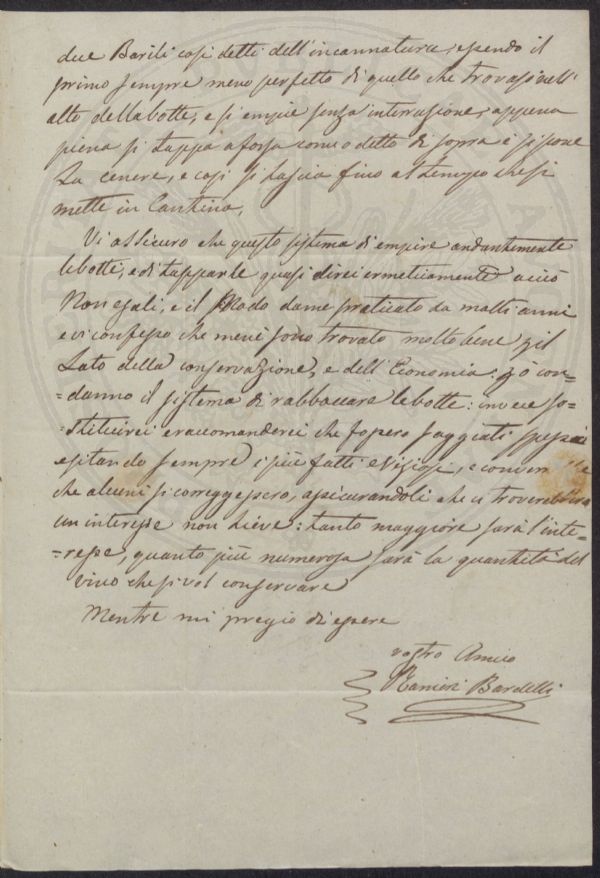 due Barili così detti dell'incannatura, essendo il
primo sempre meno perfetto di quello che trovasi nell'
alto della botte, e si empie senza interrusione, appena
piena si tappa a forsa come o detto di sopra e si pone
La cenere, e così si Lascia fino al tempo che si
mette in Cantina,
Vi assicuro che questo sistema di empire andantemente
le botti, e di tapparle quasi direi ermeticamente acciò
Non esali, e il Modo da me praticato da molti anni
e vi confesso che me ne sono trovato molto bene, pil
Lato della conservazione, e dell'Economia: Jo con-
=danno il sistema di rabboccare le botte: invece so-
=stituirei e raccomanderei che fossero saggiati spesso
esitando sempre i più fatti e Visiosi, e
che alcuni si correggessero, assicurandoli che ci troverebbero
un interesse non Lieve: tanto maggiore sarà l'inte-
=resse, quanto più numerosa sarà la quantità del
vino che si vol conservare
Mentre mi pregio di essere
vostro Amico
Ranieri Bardelli